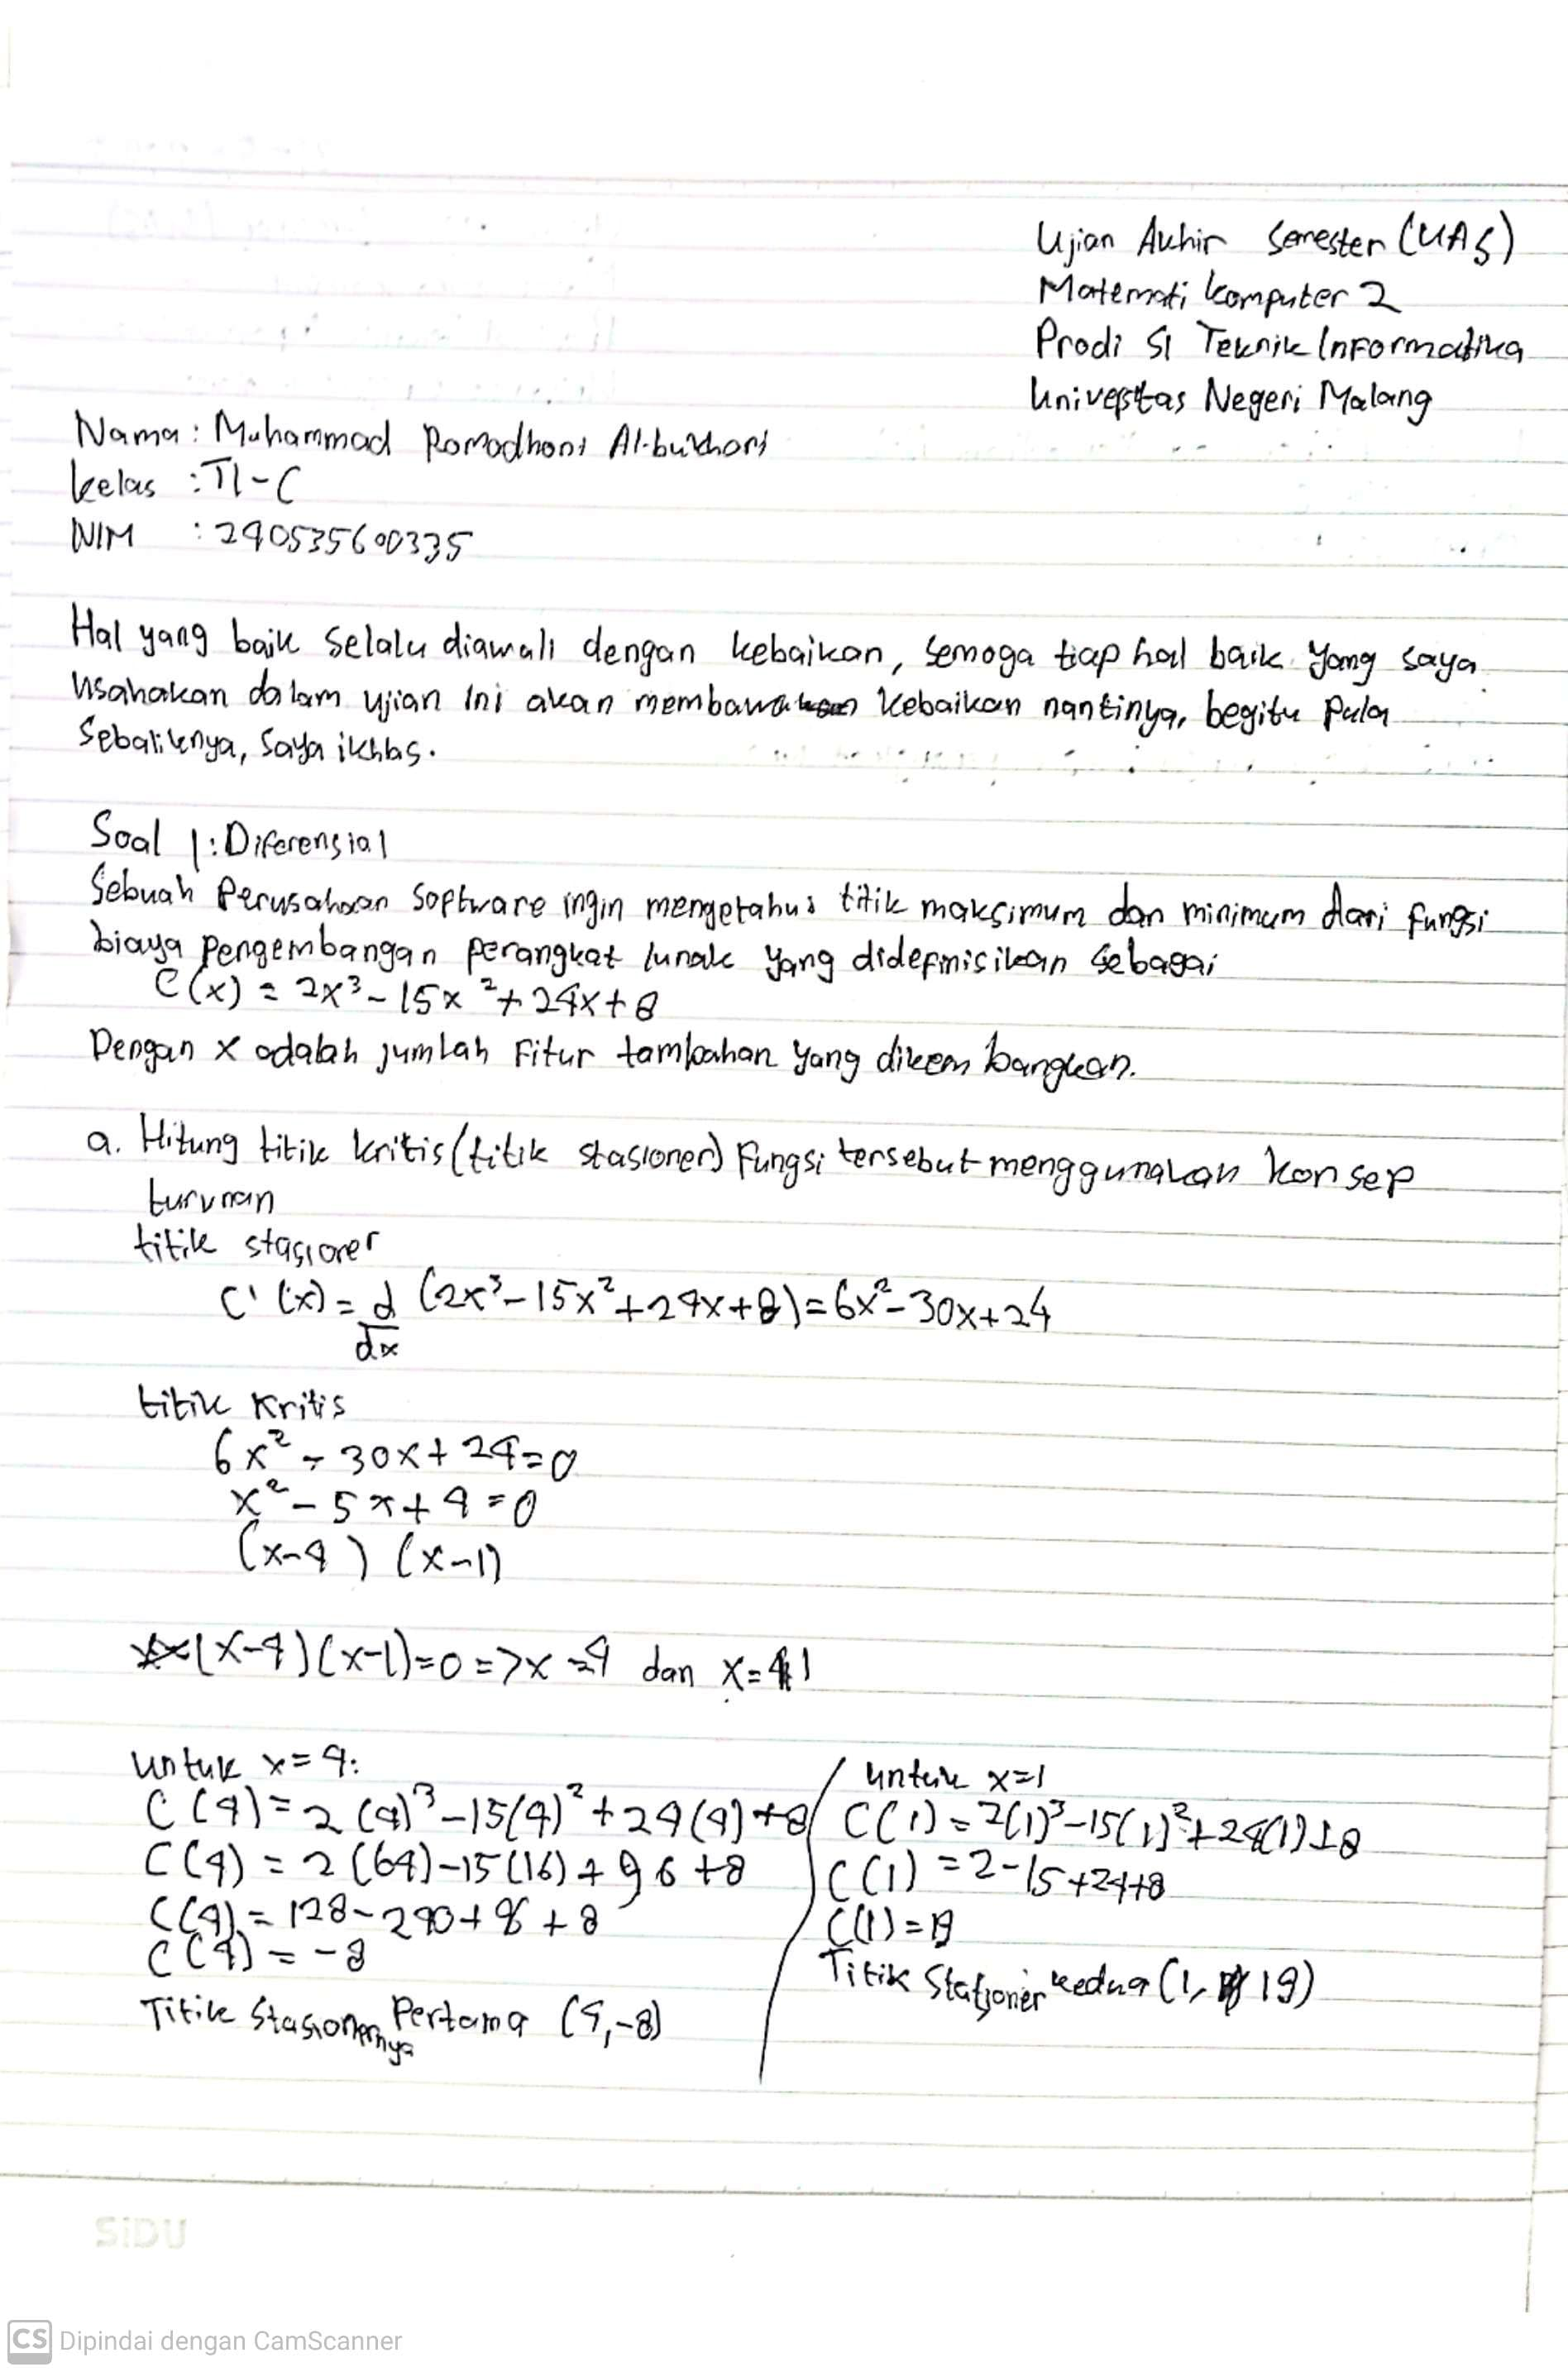 Ujian Akhir Semester (UAS)
Matemati Komputer 2
Prodi S1 Teknik Informatika
Universitas Negeri Malang
Nama : Muhammad Romadhoni Al-bukhori
Kelas : TI-C
NIM : 240535600335
Hal yang baik selalu diawali dengan kebaikan, semoga tiap hal baik yang saya
usahakan dalam ujian ini akan membawa kebaikan nantinya, begitu pula
sebaliknya, saya ikhlas.
Soal 1: Diferensial
Sebuah Perusahaan Software ingin mengetahui titik maksimum dan minimum dari fungsi
biaya pengembangan perangkat lunak yang didefinisikan sebagai
C(x) = 2x³ - 15x² + 24x + 8
Dengan x adalah jumlah Fitur tambahan yang dikembangkan.
a. Hitung titik kritis (titik stasioner) Fungsi tersebut menggunakan konsep
turunan
titik stasioner
C'(x) = d/dx (2x³ - 15x² + 24x + 8) = 6x² - 30x + 24
titik kritis
6x² - 30x + 24 = 0
x² - 5x + 4 = 0
(x-4) (x-1)
(x-4)(x-1)=0 => x = 4 dan x = 1
Untuk x = 4:
C(4) = 2(4)³ - 15(4)² + 24(4) + 8
C(4) = 2(64) - 15(16) + 96 + 8
C(4) = 128 - 240 + 96 + 8
C(4) = -8
Titik Stasionernya Pertama (4,-8)
untuk x=1
C(1) = 2(1)³ - 15(1)² + 24(1) + 8
C(1) = 2 - 15 + 24 + 8
C(1) = 19
Titik Stationer kedua (1, 19)
SiDU
CS Dipindai dengan CamScanner